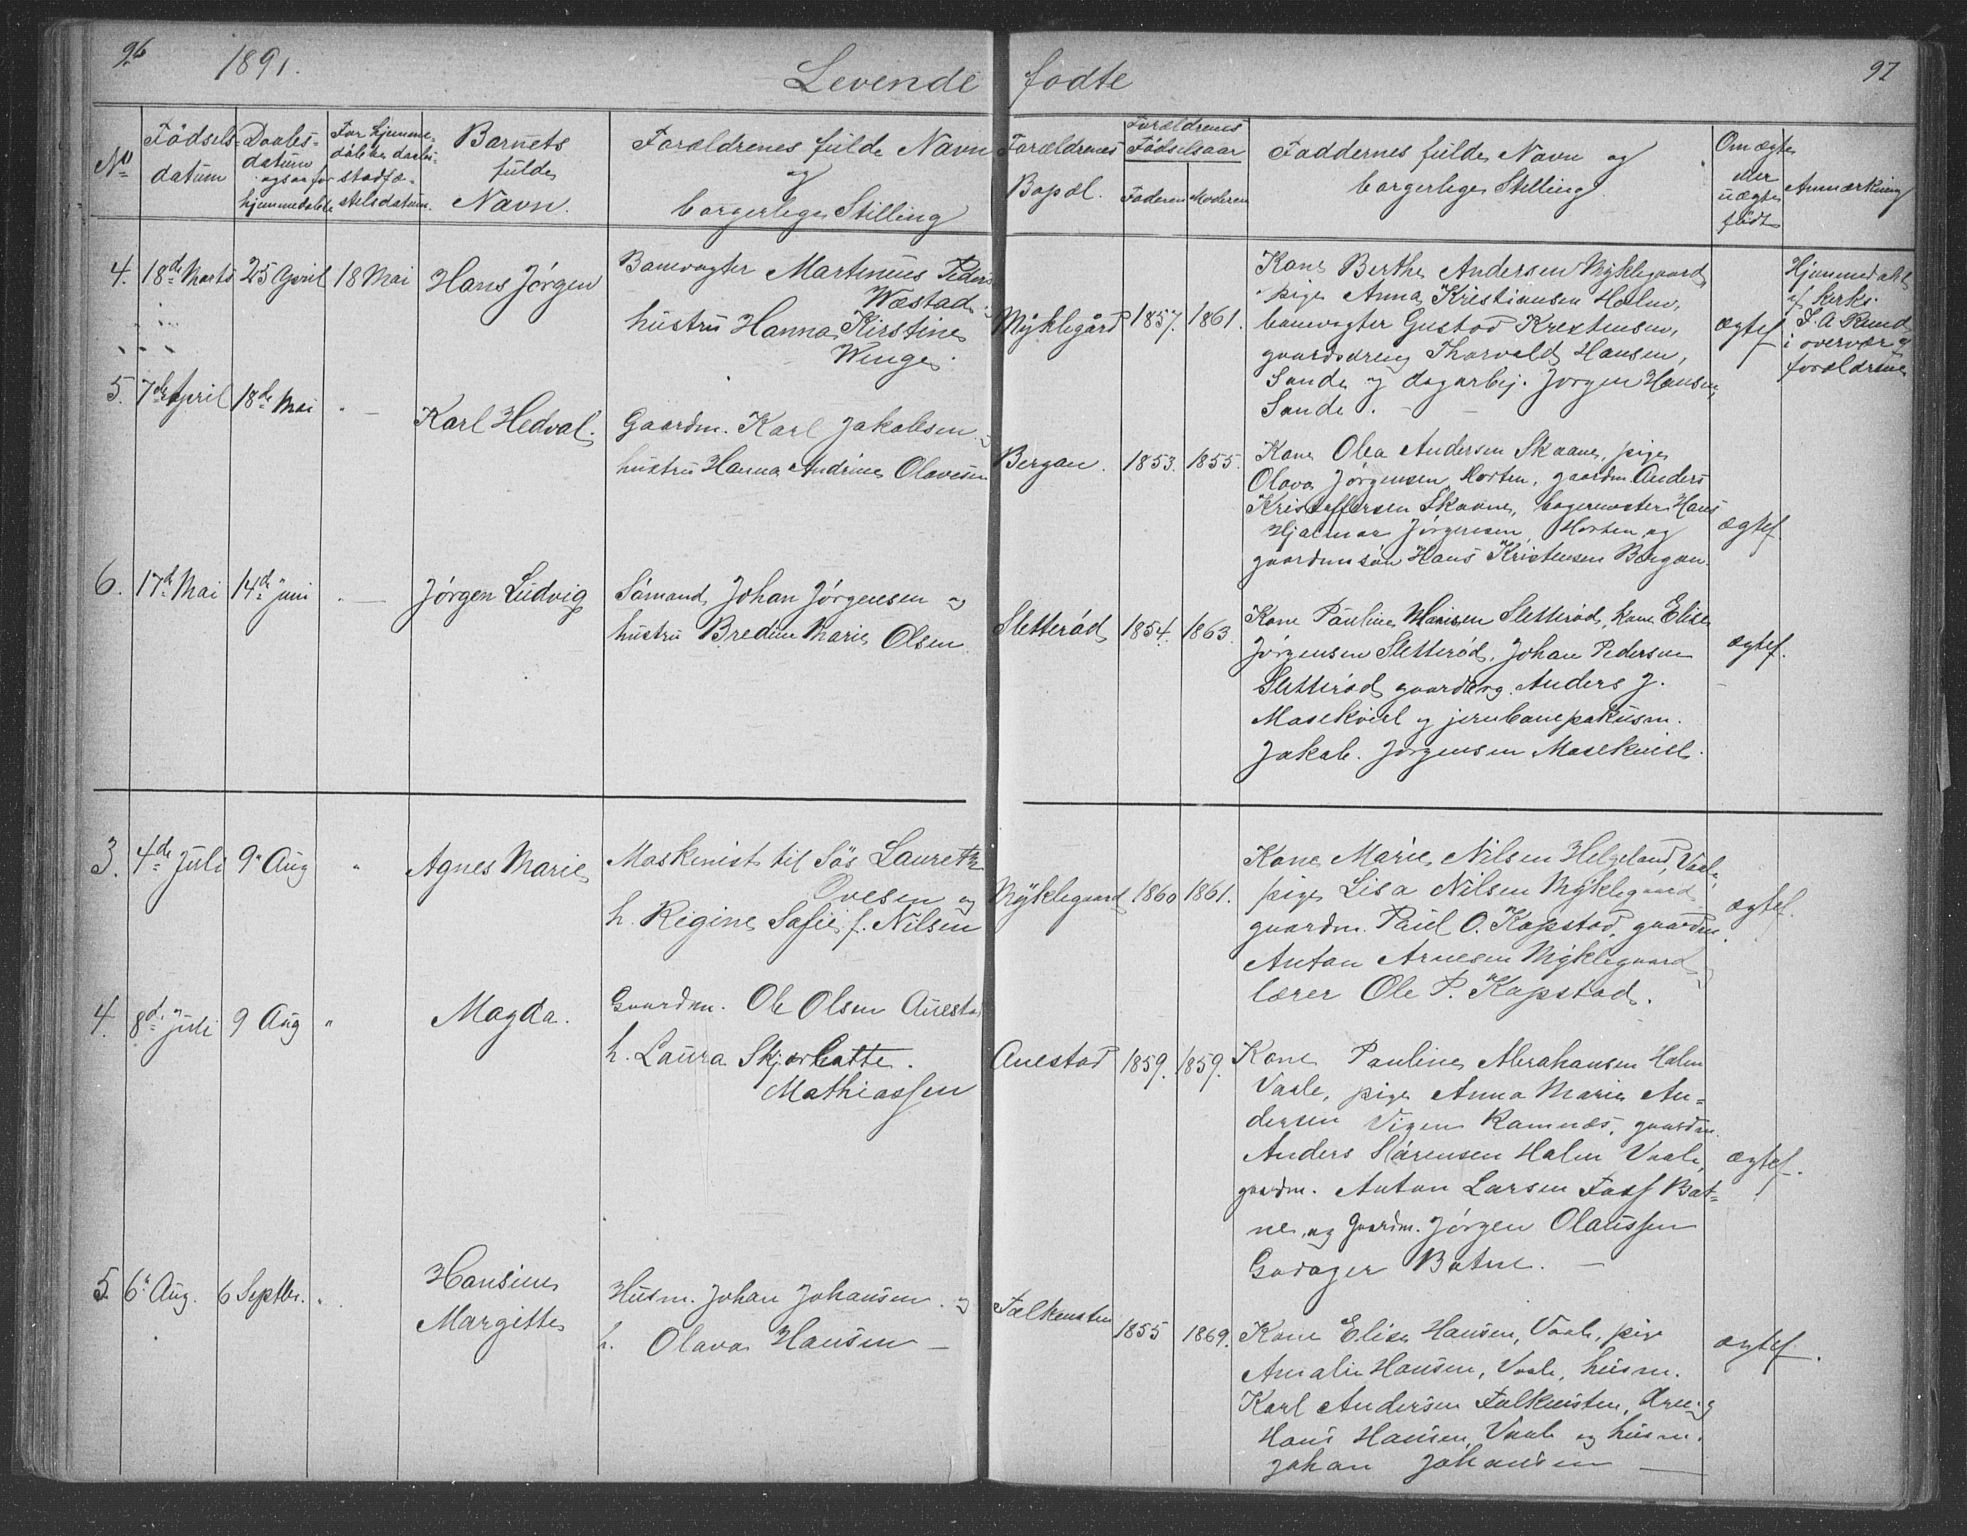 96
1891.
Levende fødte
97
No
Fødsels-
datum
Daabs-
datum
ogsaa for
hjemmedøbte
For hjemme-
døbte daabs-
stadfæ-
stelsdatum.
Barnets
fulde
Navn.
Forældrenes fulde Navn
og
borgerlige Stilling
Forældrenes
Bopæl.
Forældrenes
Fødselsaar
Faderen
Moderen
Faddernes fulde Navn og
borgerlige Stilling
Om ægte
eller
uægte
født
Anmærkning
4.
18de Marts
25 April
18 Mai
Hans Jørgen
Banevogter Martinius Peders
Wæstad
hustru Hanna Kirstine
Winge.
Myklegård
1857.
1861.
Kone Berthe Andersen Myklegaard
pige Anna Kristiansen Holm,
banevogter Gustad Kristensen,
gaardsdreng Thorvald Hansen,
Sande og dagarbej. Jørgen Hansen,
Sande.
ægtef
Hjemmedøbt
af kirks.
F. A. Rund
i overvær af
forældrene
5.
7de April
18de Mai
"
Karl Hedval.
Gaardm. Karl Jakobsen og
hustru Hanna Andrine Olavesen
Bergan.
1853.
1855.
Kone Olea Andersen Skaane, pige
Olava Jørgensen Horten, gaardm Anders
Kristoffersen Skaane, bagermester Hans
Hjalmar Jørgensen, Horten og
gaardmansøn Hans Kristensen Bergan.
ægtef.
6.
17d Mai
14d Juni
"
Jørgen Ludvig
Sømand Johan Jørgensen og
hustru Bredine Marie Olsen
Sletterød
1854.
1863.
Kone Pauline Hansen Sletterød, kone Elise
Jørgensen Sletterød, Johan Pedersen
Sletterød, gaardbrg. Anders J.
Masekvisl og jernbanepakusm.
Jakob Jørgensen Masekvisl.
ægtef.
3.
4de Juli
9. Aug
"
Agnes Marie
Maskinist til Søs Lauretz
Ovesen og
h. Regine Sofie f. Nilsen
Myklegaard
1860
1861.
Kone Marie Nilsen Helgeland, Vaale,
pige Lisa Nilsen Myklegaard
gaardm. Paul O. Kopstad, gaardm.
Anton Arnesen Myklegaard
lærer Ole P. Kopstad.
ægtef.
4.
8d Juli
9 Aug
"
Magda.
Gaardm. Ole Olsen Auestad
h. Laura Skjærbatte.
Mathiassen
Auestad
1859.
1859.
Kone Pauline Abrahamsen Holm
Vaale, pige Anna Marie An-
dersen Vigen Ramnæs, gaardm.
Anders Sørensen Holm Vaale,
gaardm. Anton Larsen Foss Bot-
ne, og Gaardm. Jørgen Olaussen
Gadager Botne.
ægtef.
5.
6. Aug.
6 Septbr.
"
Hansine
Margitte
Husm. Johan Johansen. og
h. Olava Hansen
Falkensten
1855
1869.
Kone Elise Hansen, Vaale, pige
Amalie Hansen, Vaale, husm.
Karl Andersen Falkensten, dreng
Hans Hansen, Vaale og husm.
Johan Johansen
ægtef.